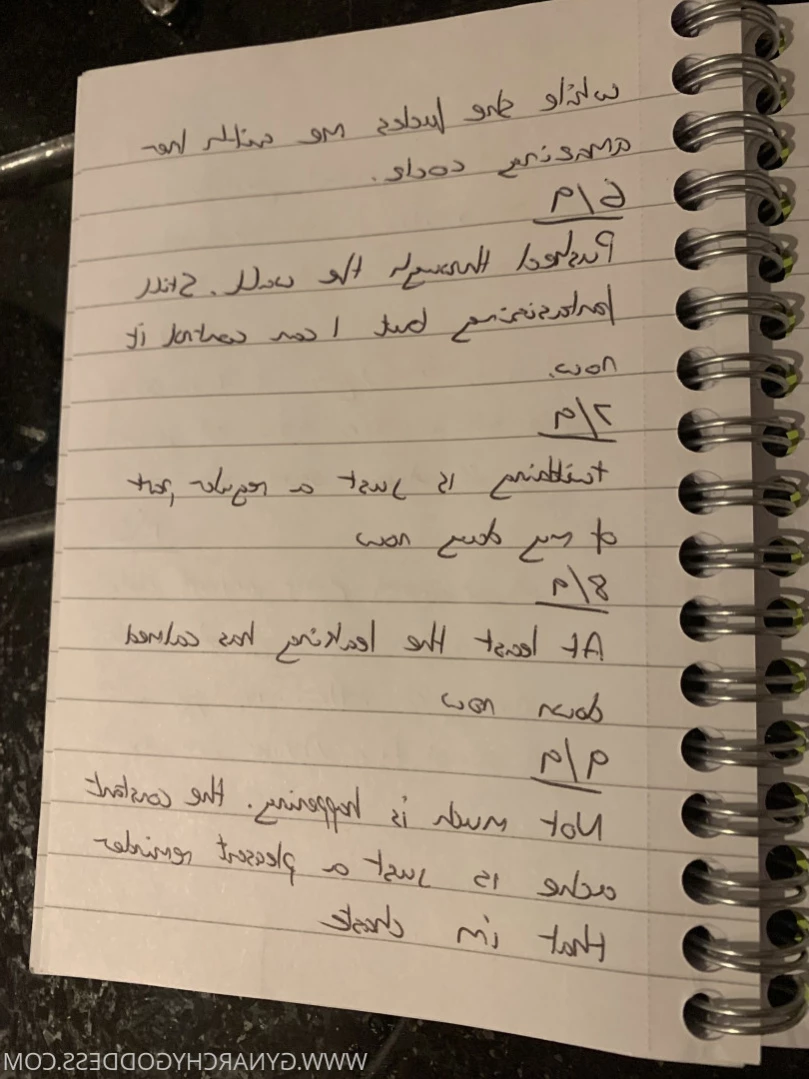 while she fucks me with her
amazing cock.
6/9
Pushed through the wall. Still
fantasising but I can control it
now.
7/9
twitching is just a regular part
of my day now
8/9
At least the leaking has calmed
down now
9/9
Not much is happening. the constant
ache is just a pleasent reminder
that i'm chaste
WWW.GYNARCHYGODDESS.COM